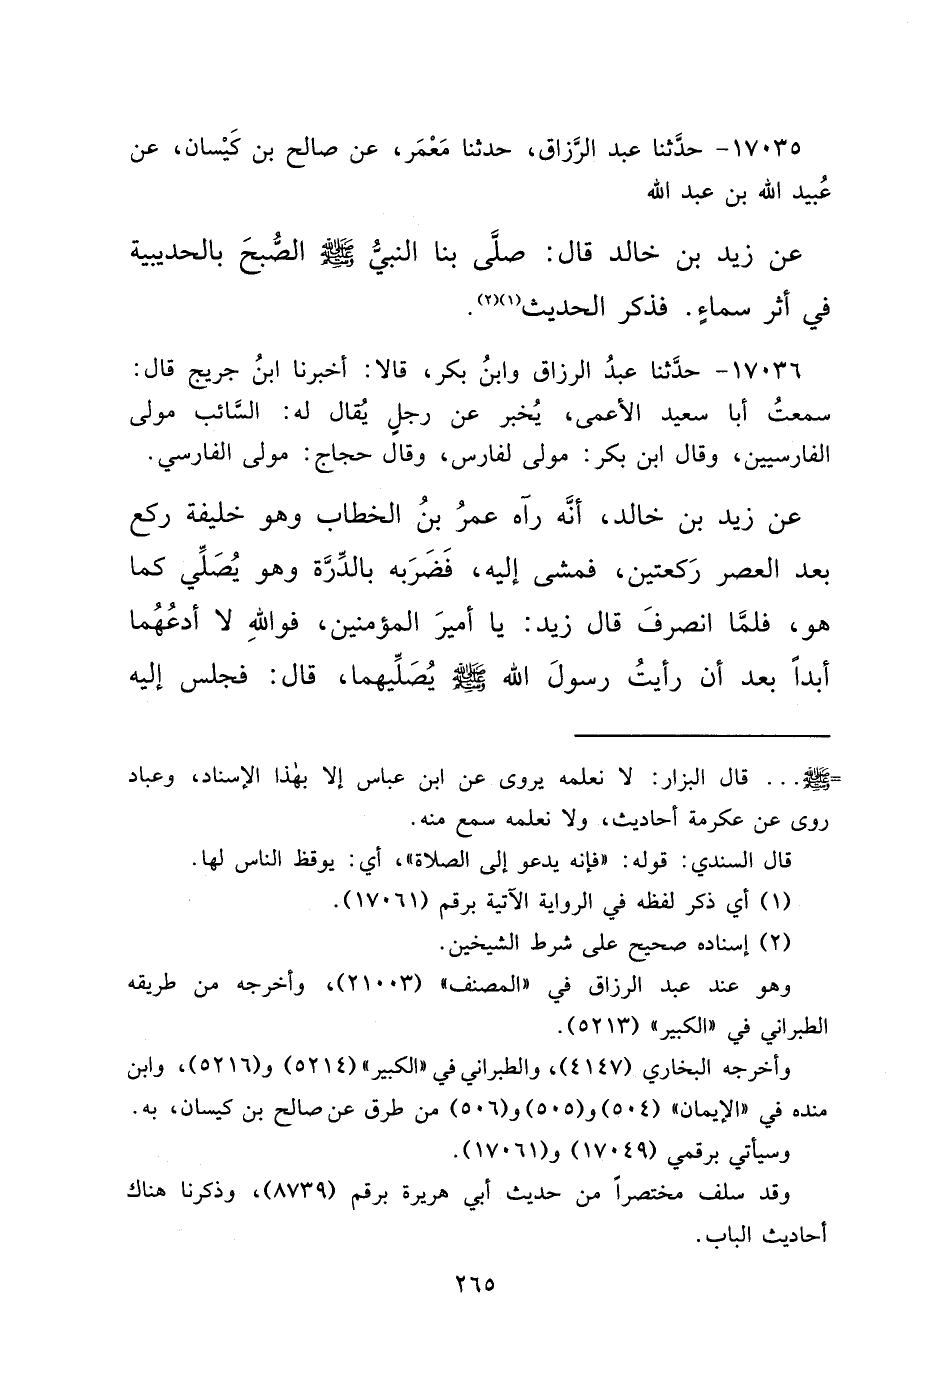 ١٧٠٣٥- حدَّثنا عبد الرَّزاق، حدثنا مَعْمَر، عن صالح بن كَيْسان، عن
عُبيد الله بن عبد الله
عن زيد بن خالد قال: صلَّى بنا النبيُّ ﷺ الصُّبحَ بالحديبية
في أثر سماءٍ. فذكر الحديث(١)(٢).
١٧٠٣٦- حدَّثنا عبدُ الرزاق وابنُ بكر، قالا: أخبرنا ابنُ جريج قال:
سمعتُ أبا سعيد الأعمى، يُخبر عن رجلٍ يُقال له: السَّائب مولى
الفارسيين، وقال ابن بكر: مولى لفارس، وقال حجاج: مولى الفارسي.
عن زيد بن خالد، أنَّه رآه عمرُ بنُ الخطاب وهو خليفة ركع
بعد العصر رَكعتين، فمشى إليه، فَضَرَبه بالدِّرَّة وهو يُصَلِّي كما
هو، فلمَّا انصرفَ قال زيد: يا أميرَ المؤمنين، فواللهِ لا أدعُهُما
أبداً بعد أن رأيتُ رسولَ الله ﷺ يُصَلِّيهما، قال: فجلس إليه
=ﷺ... قال البزار: لا نعلمه يروى عن ابن عباس إلا بهٰذا الإسناد، وعباد
روى عن عكرمة أحاديث، ولا نعلمه سمع منه.
قال السندي: قوله: «فإنه يدعو إلى الصلاة»، أي: يوقظ الناس لها.
(١) أي ذكر لفظه في الرواية الآتية برقم (١٧٠٦١).
(٢) إسناده صحيح على شرط الشيخين.
وهو عند عبد الرزاق في «المصنف» (٢١٠٠٣)، وأخرجه من طريقه
الطبراني في «الكبير» (٥٢١٣).
وأخرجه البخاري (٤١٤٧)، والطبراني في «الكبير» (٥٢١٤) و(٥٢١٦)، وابن
منده في «الإيمان» (٥٠٤) و(٥٠٥) و(٥٠٦) من طرق عن صالح بن كيسان، به.
وسيأتي برقمي (١٧٠٤٩) و(١٧٠٦١).
وقد سلف مختصراً من حديث أبي هريرة برقم (٨٧٣٩)، وذكرنا هناك
أحاديث الباب.
٢٦٥